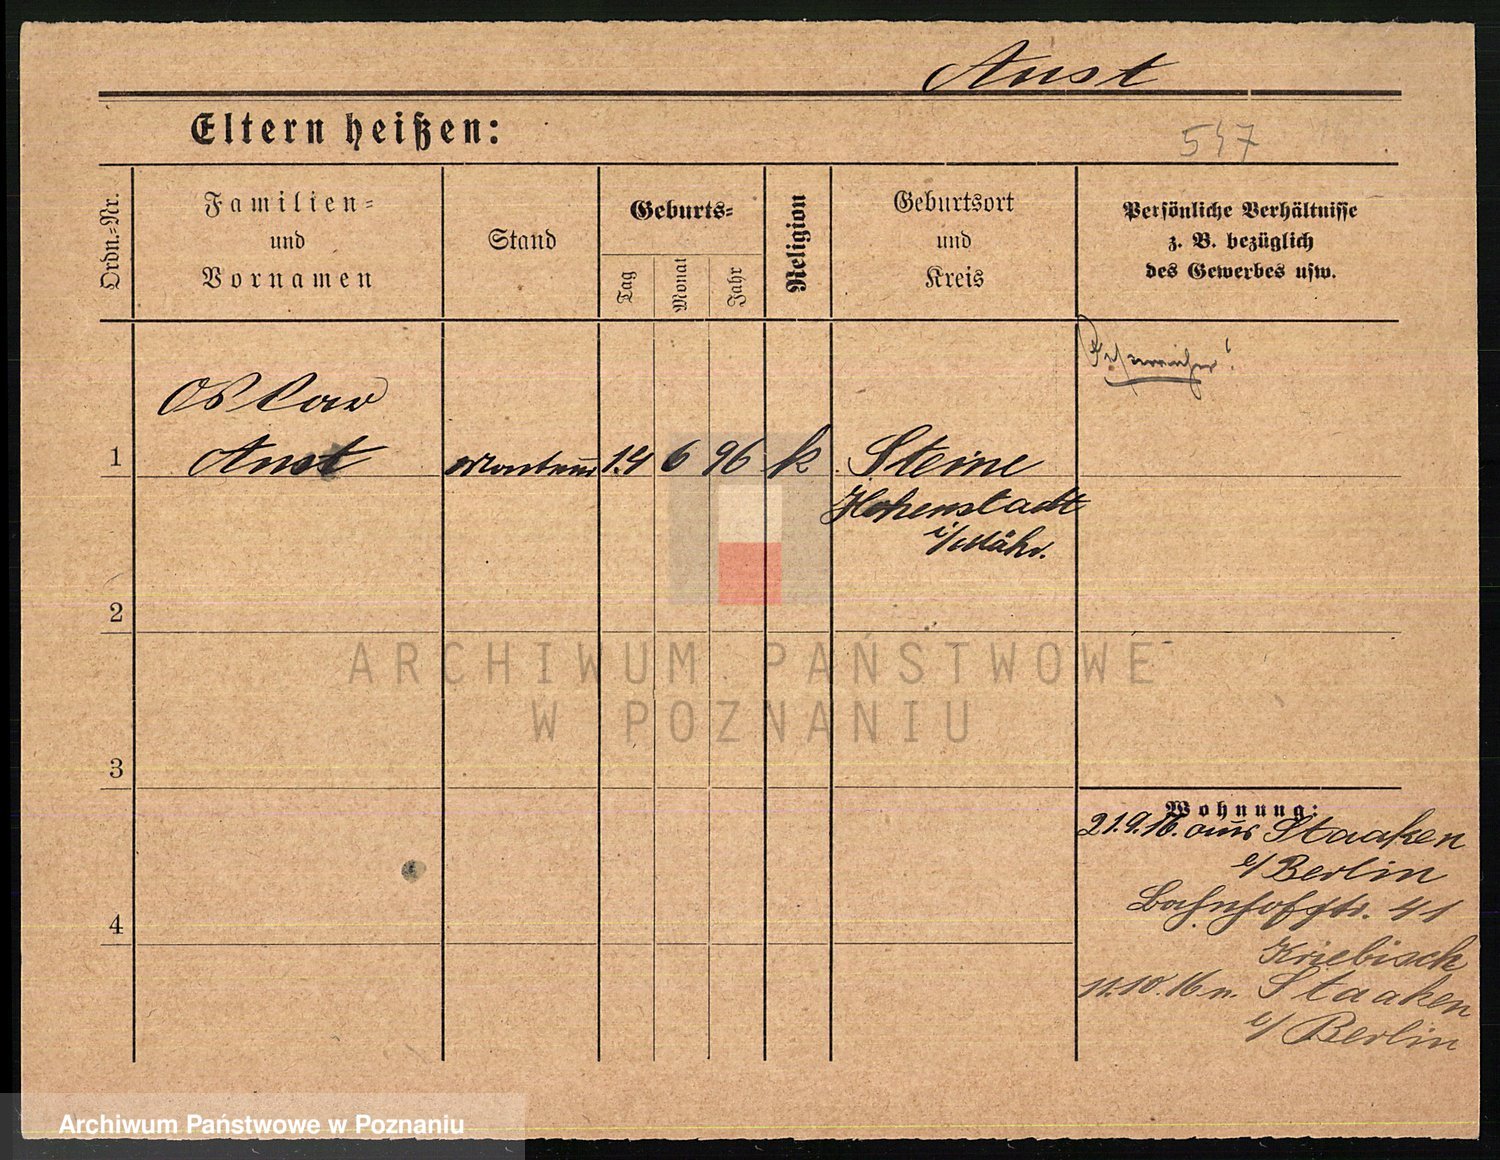 Anst
Eltern heißen:
547
Ordn.-Nr.
Familien-
und
Vornamen
Stand
Geburts-
Tag
Monat
Jahr
Religion
Geburtsort
und
Kreis
Persönliche Verhältnisse
z. B. bezüglich
des Gewerbes usw.
Oskar
1 Anst Monteur 14 6 96 k. Steine
Hohenstadt
i/Mähr.
2
ARCHIWUM PAŃSTWOWE
W POZNANIU
3
Wohnung:
21.9.16. aus Staaken
b/ Berlin
Bahnhofstr. 41
4
Kriebisch
11.10.16 n. Staaken
b/ Berlin
Archiwum Państwowe w Poznaniu